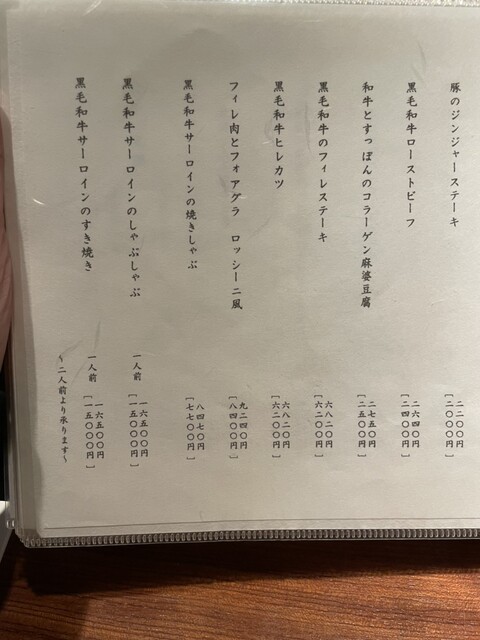 豚のジンジャーステーキ
二二〇〇円
［二〇〇〇円］
黒毛和牛ローストビーフ
二六四〇円
［二四〇〇円］
和牛とすっぽんのコラーゲン麻婆豆腐
二七五〇円
［二五〇〇円］
黒毛和牛のフィレステーキ
六八二〇円
［六二〇〇円］
黒毛和牛ヒレカツ
六八二〇円
［六二〇〇円］
フィレ肉とフォアグラ　ロッシーニ風
九二四〇円
［八四〇〇円］
黒毛和牛サーロインの焼きしゃぶ
八四七〇円
［七七〇〇円］
黒毛和牛サーロインのしゃぶしゃぶ
一人前
一六五〇〇円
［一五〇〇〇円］
黒毛和牛サーロインのすき焼き
一人前
一六五〇〇円
［一五〇〇〇円］
〜二人前より承ります〜